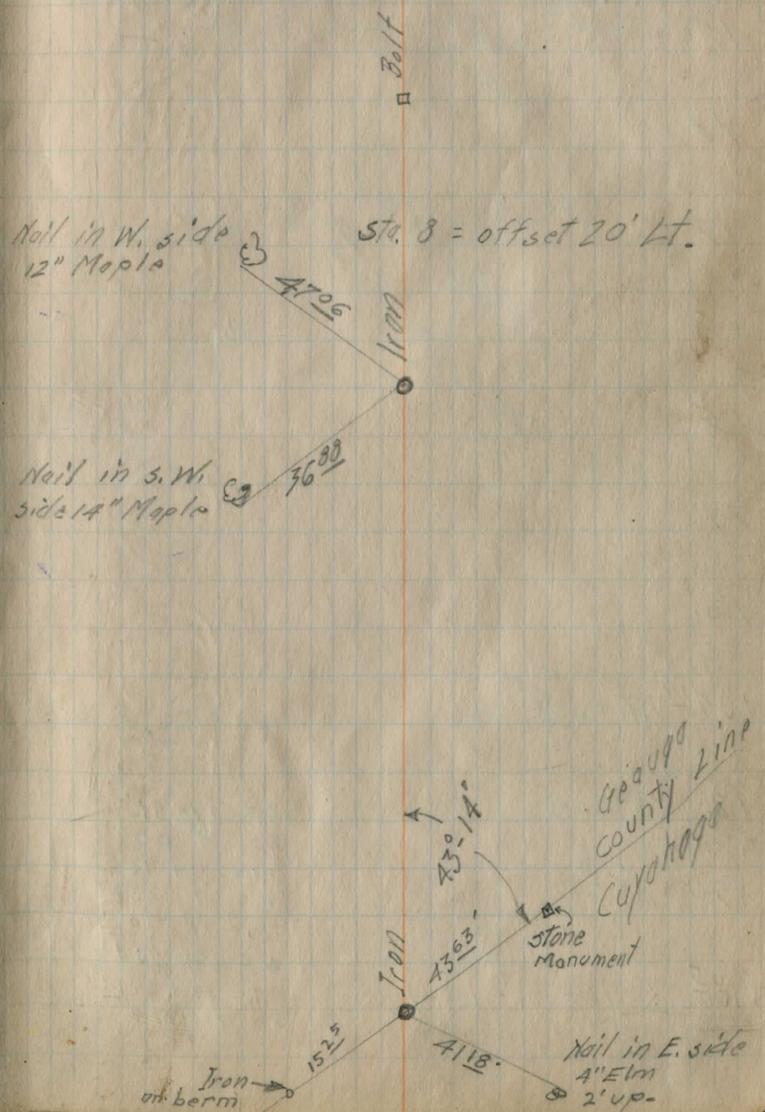 Bolt
Nail in W. side
12" Maple
Sta. 8 = offset 20' Lt.
47 06
Iron
36 88
Nail in S.W.
side 14" Maple
Geauga
County Line
Cuyahoga
43°-14'
Stone
Monument
43 63'
Iron
15 25
41 18.
Iron
on berm
Nail in E. side
4" Elm
2' up-